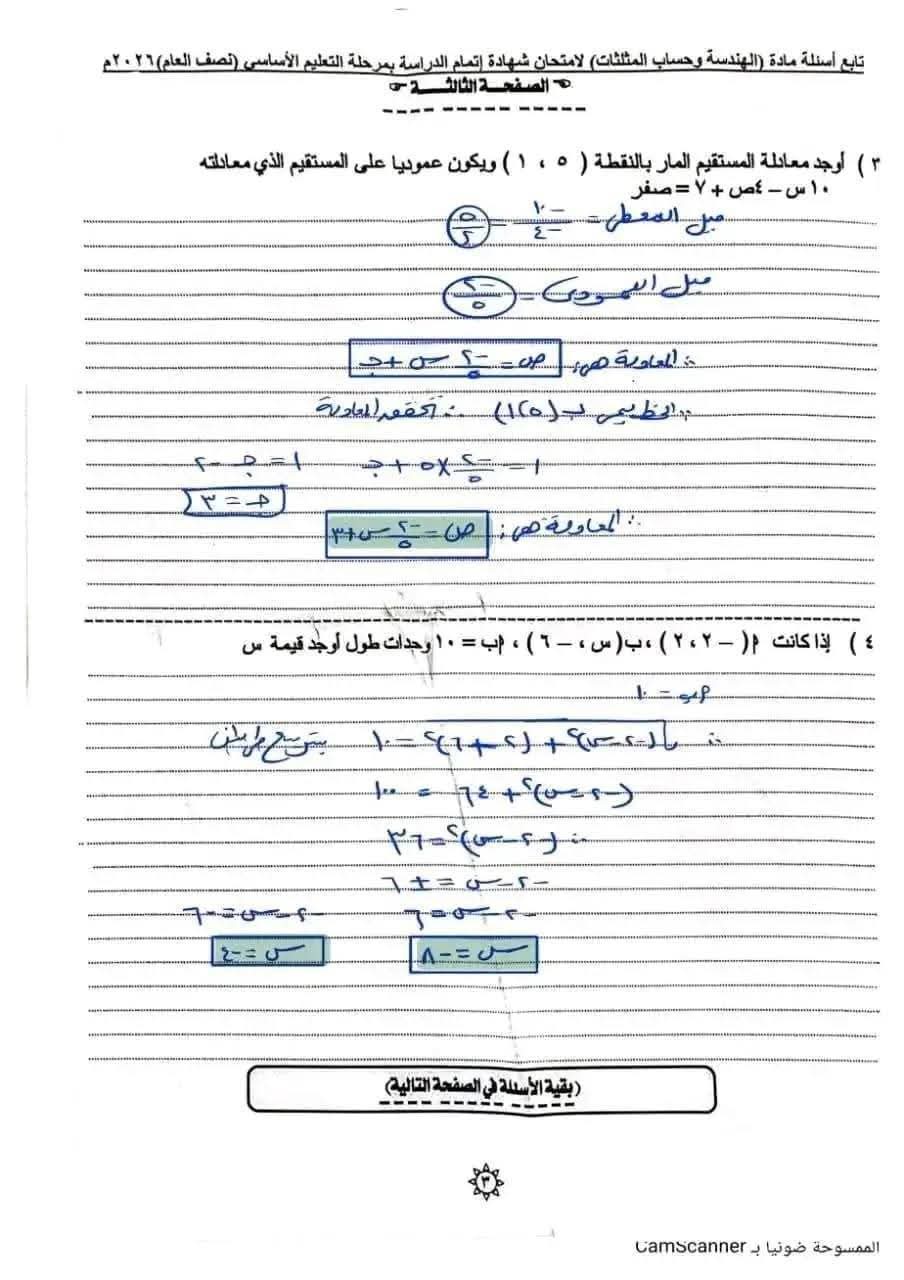 تابع أسئلة مادة (الهندسة وحساب المثلثات) لامتحان شهادة إتمام الدراسة بمرحلة التعليم الأساسي (نصف العام) ٢٠٢٦م
الصفحة الثالثة
٣ ) أوجد معادلة المستقيم المار بالنقطة ( ٥ ، ١ ) ويكون عموديا على المستقيم الذي معادلته
١٠ س – ٤ص + ٧ = صفر
ميل المعطى = -١٠/-٤ = ٥/٢
ميل العمودى = -٢/٥
∴ المعادلة هى: ص = -٢/٥ س + جـ
∵ الخط يمر بـ (٥،١) ∴ تحقق المعادلة
١ = -٢/٥ × ٥ + جـ ١ = جـ - ٢
جـ = ٣
∴ المعادلة هى: ص = -٢/٥ س + ٣
٤ ) إذا كانت ٢( – ٢ ، ٢ ) ، ب( س ، – ٦ ) ، ٢ب = ١٠ وحدات طول أوجد قيمة س
٢ب = ١٠
∴ √(-٢-س)² + (٢+٦)² = ١٠ بتربيع طرفين
(-٢-س)² + ٦٤ = ١٠٠
∴ (-٢-س)² = ٣٦
-٢-س = ± ٦
-٢-س = ٦ -٢-س = -٦
س = -٨ س = ٤
(بقية الأسئلة في الصفحة التالية)
٣
الممسوحة ضوئيا بـ CamScanner